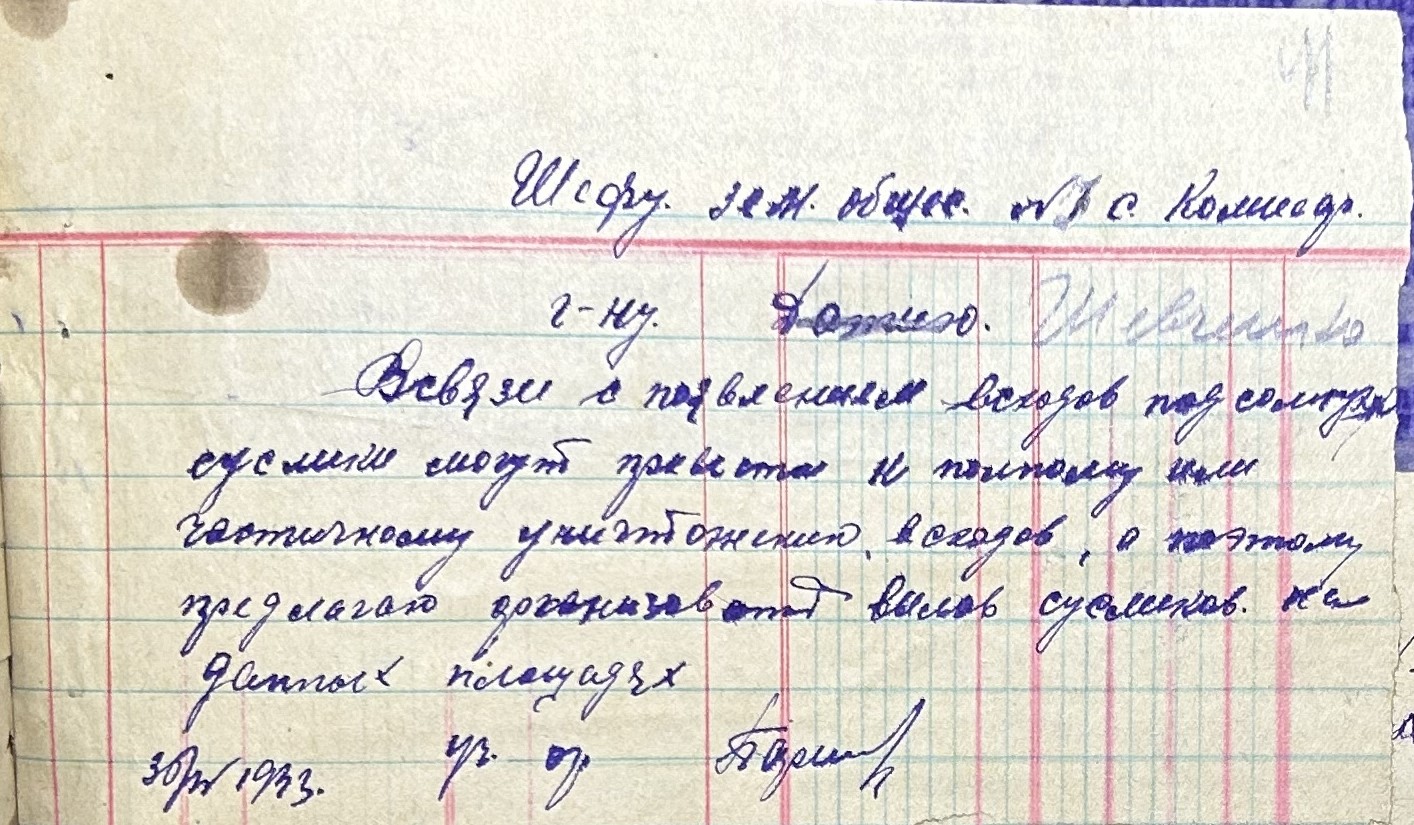 Шефу. зем. общес. №7 с. Комисар.
г-ну. Шевченко
Всвязи с появлением всходов подсолнух
суслики могут превести к полному или
частичному уничтожению, всходов, а поэтому
предлагаю организовать вылов сусликов. на
данных площадях
1933.